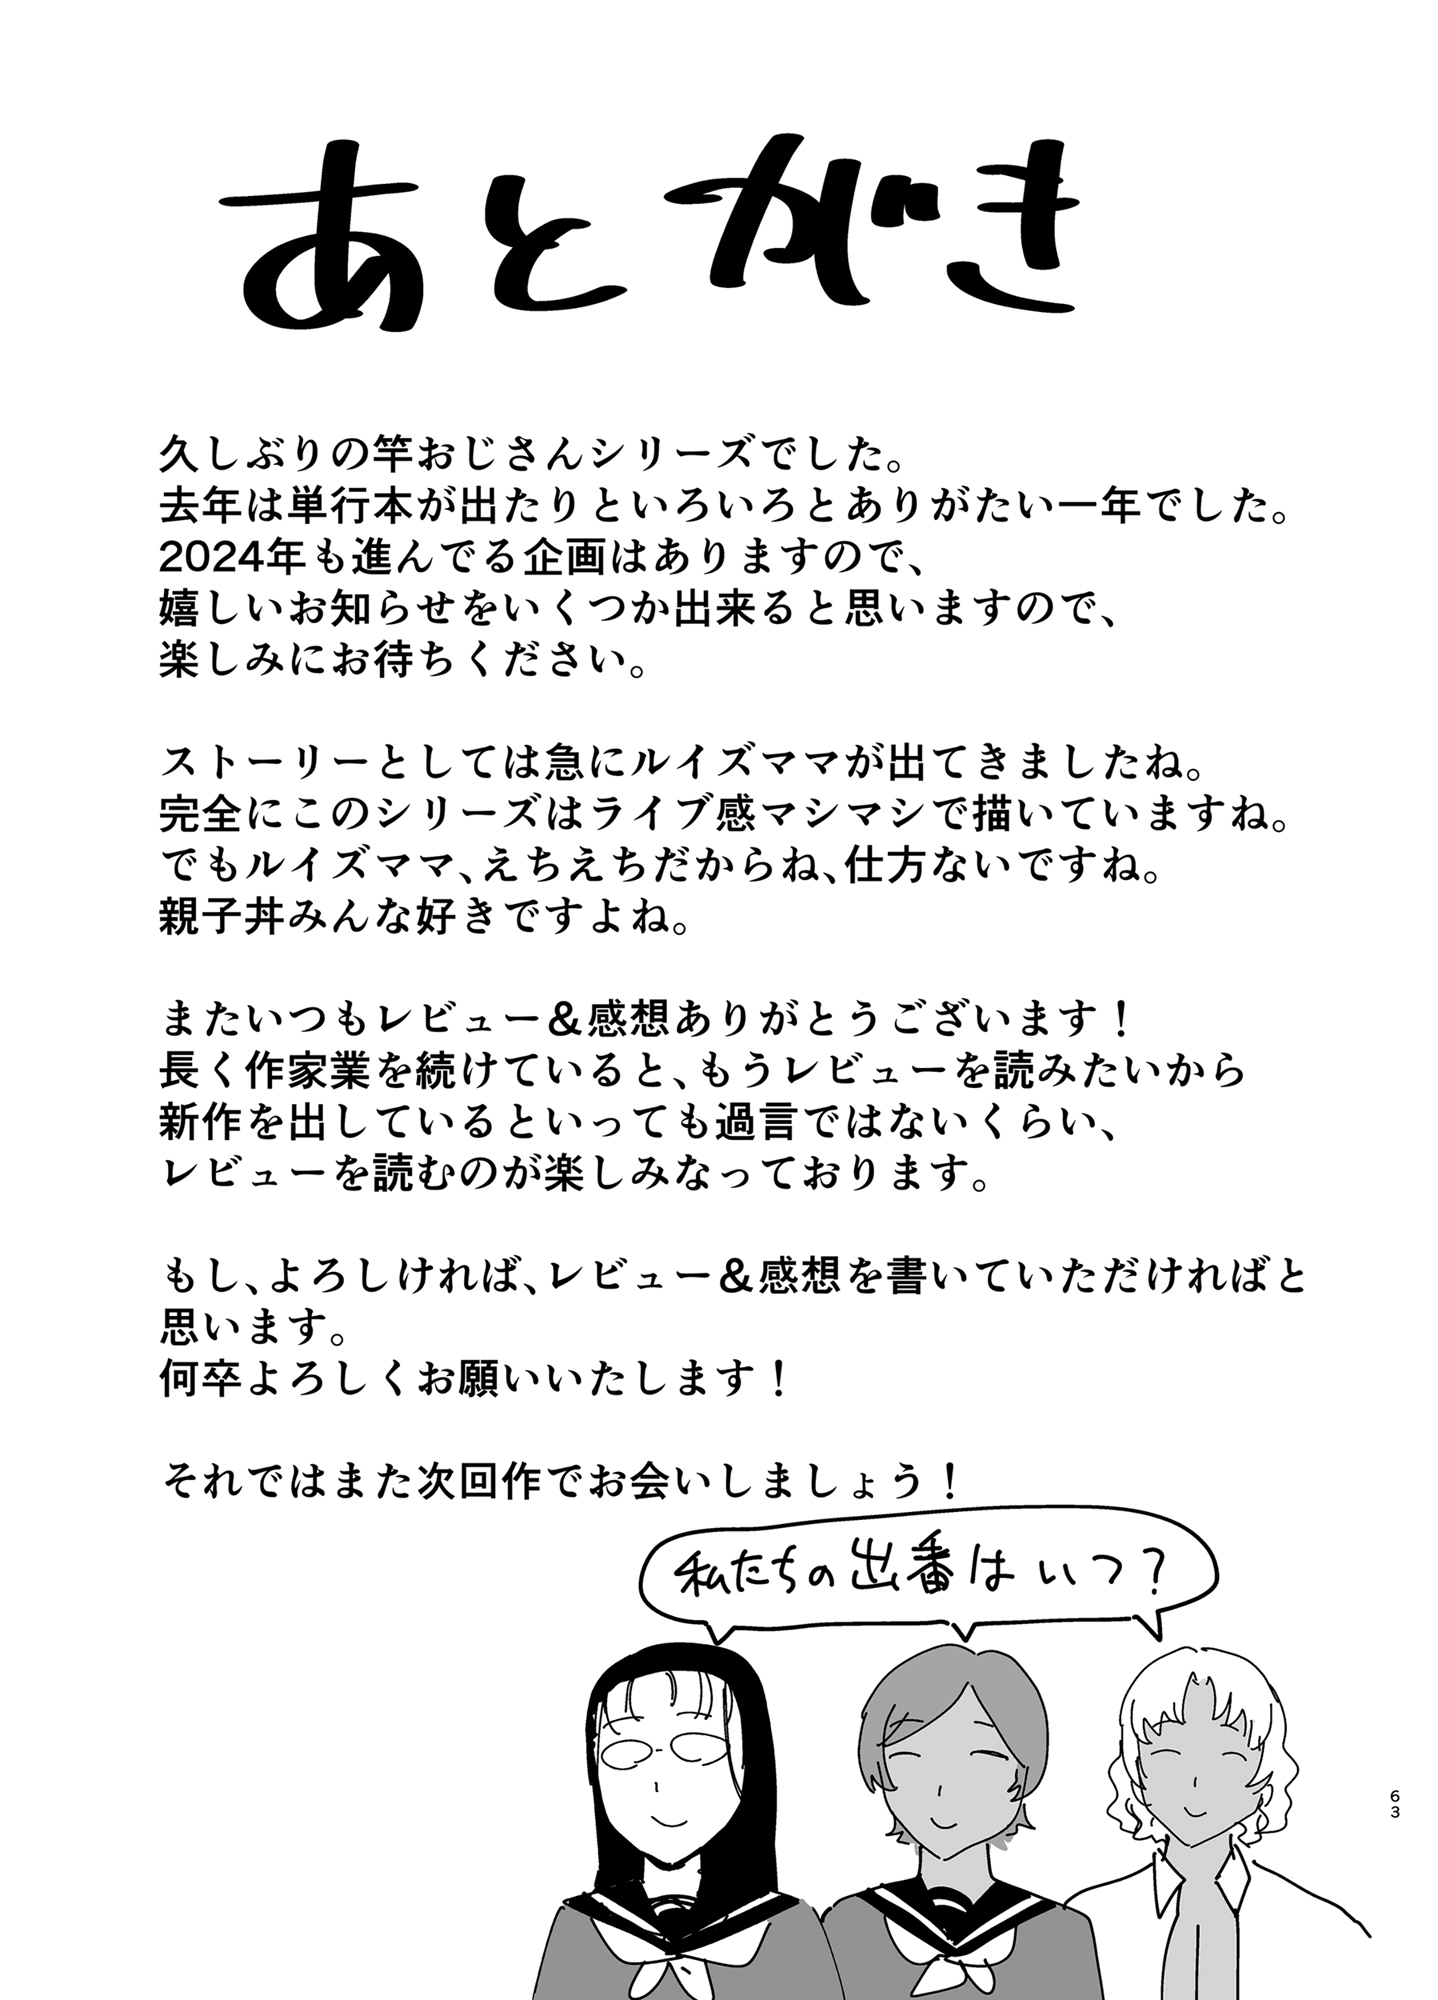 あとがき
久しぶりの竿おじさんシリーズでした。
去年は単行本が出たりといろいろとありがたい一年でした。
2024年も進んでる企画はありますので、
嬉しいお知らせをいくつか出来ると思いますので、
楽しみにお待ちください。
ストーリーとしては急にルイズママが出てきましたね。
完全にこのシリーズはライブ感マシマシで描いていますね。
でもルイズママ、えちえちだからね、仕方ないですね。
親子丼みんな好きですよね。
またいつもレビュー＆感想ありがとうございます！
長く作家業を続けていると、もうレビューを読みたいから
新作を出しているといっても過言ではないくらい、
レビューを読むのが楽しみなっております。
もし、よろしければ、レビュー＆感想を書いていただければと
思います。
何卒よろしくお願いいたします！
それではまた次回作でお会いしましょう！
私たちの出番はいつ？
63